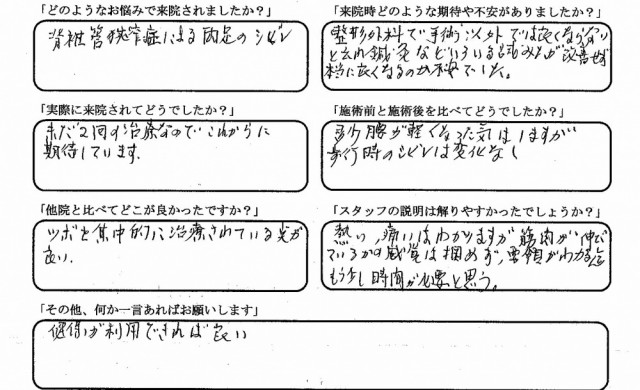 「どのようなお悩みで来院されましたか？」
脊柱管狭窄症による両足のシビレ
「来院時どのような期待や不安がありましたか？」
整形外科で手術以外では良くならない
と云れ鍼灸などいろいろ試みたが改善せず
本当に良くなるのか不安でした。
「実際に来院されてどうでしたか？」
まだ2回の治療なのでこれからに
期待しています.
「施術前と施術後を比べてどうでしたか？」
多少腰が軽くなった気はしますが
歩行時のシビレは変化なし
「他院と比べてどこが良かったですか？」
ツボを集中的に治療されている点が
良い.
「スタッフの説明は解りやすかったでしょうか？」
熱い,痛いはわかりますが筋肉が伸び
ているかの感覚は掴めず,要領がわかる迄
もう少し時間が必要と思う。
「その他、何か一言あればお願いします」
健保が利用できれば良い